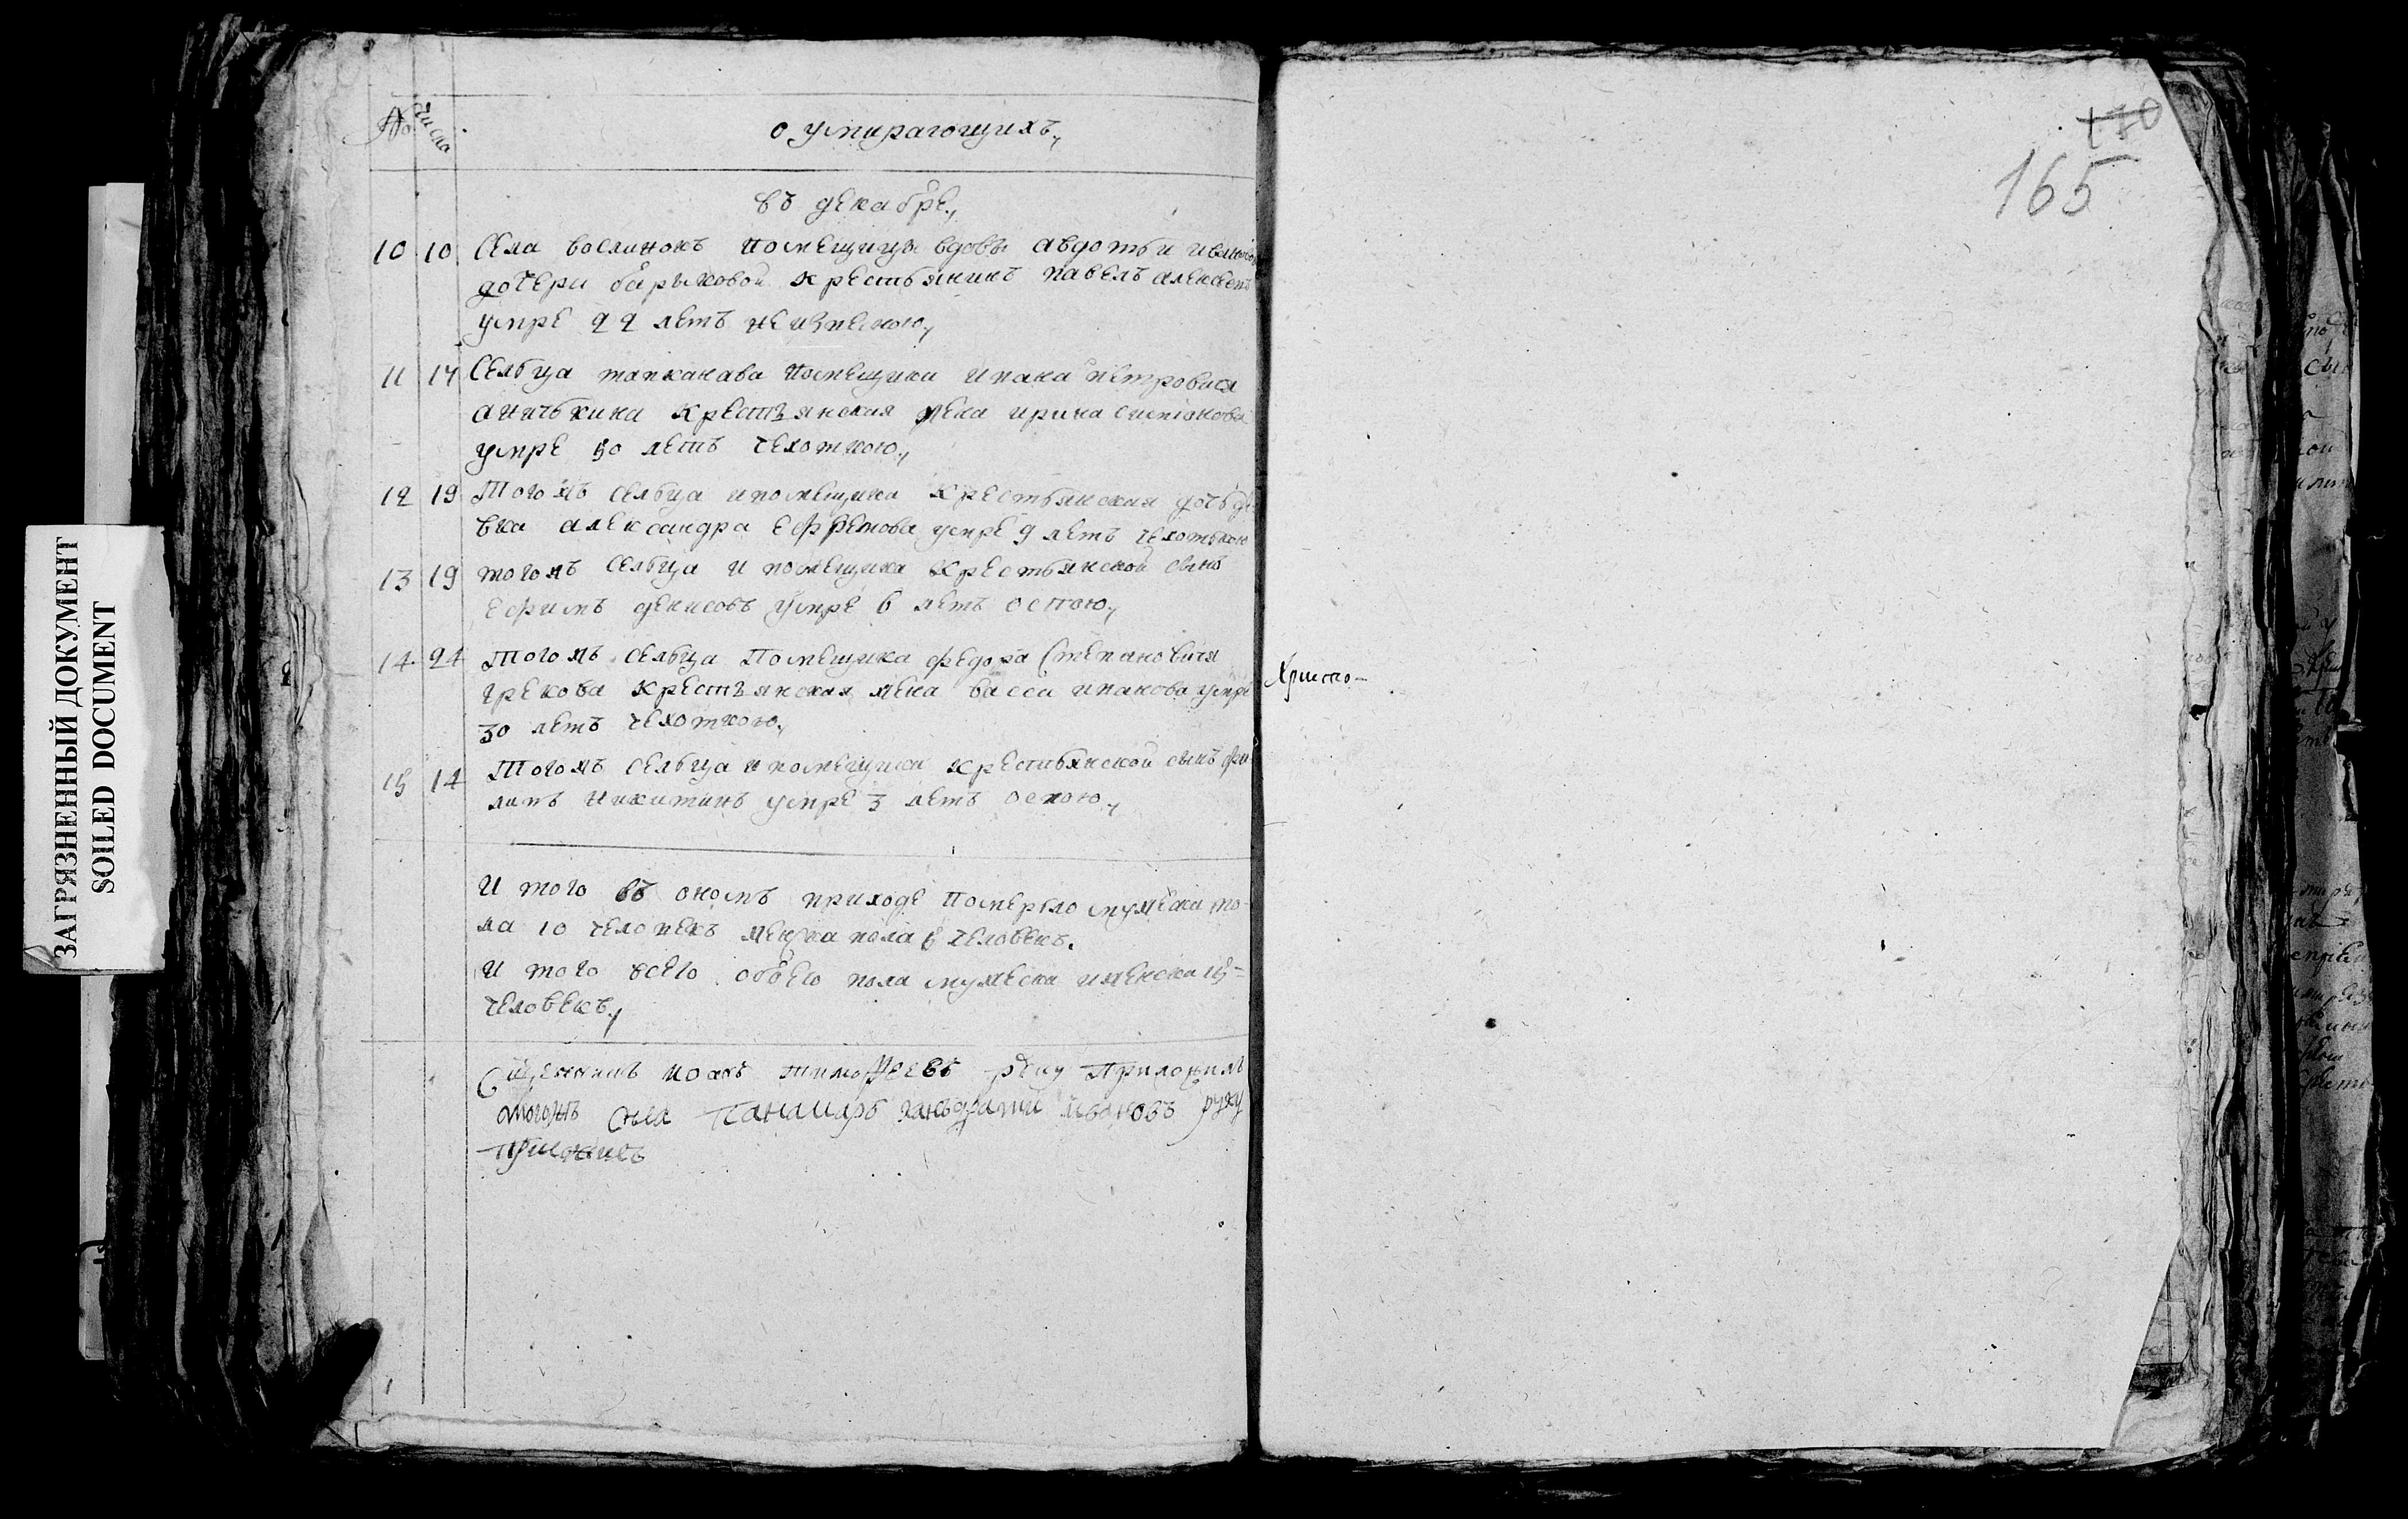 № числа
о умирающихъ,
въ декабре,
10 10 Села вослинокъ помещицы вдовы авдотьи ивановой
дочери барыковой крестьянинъ павелъ алексеевъ
умре 22 летъ
11 17 Сельца тапканава помещика ивана петровича
аничькина крестъянская жена ирина степанова
умре 50 летъ чехоткою,
12 19 Тогожъ сельца и помещика крестьянская дочь де
вка александра ефремова умре 9 летъ чехоткою
13 19 тогожъ сельца и помещика крестьянской сынъ
ефимъ денисовъ умре 6 летъ оспою,
14 24 Тогожъ сельца Помещика федора Степановича
грекова крестъянская жена васса иванова умре
30 летъ чехоткою,
15 14 Тогожъ сельца и помещика крестьянской сынъ фи
липъ никитинъ умре 3 летъ оспою,
И того въ ономъ приходе померело мужеска по
ла 10 человекъ женска пола 5 человекъ.
И того всего обоего пола мужеска и женска 15
человекъ,
Сщенникъ иоанъ тимофеевъ руку Приложилъ
тогожъ села Панамарь канъдрати ивановъ руку
приложилъ
Христо-
170
165
ЗАГРЯЗНЕННЫЙ ДОКУМЕНТ
SOILED DOCUMENT